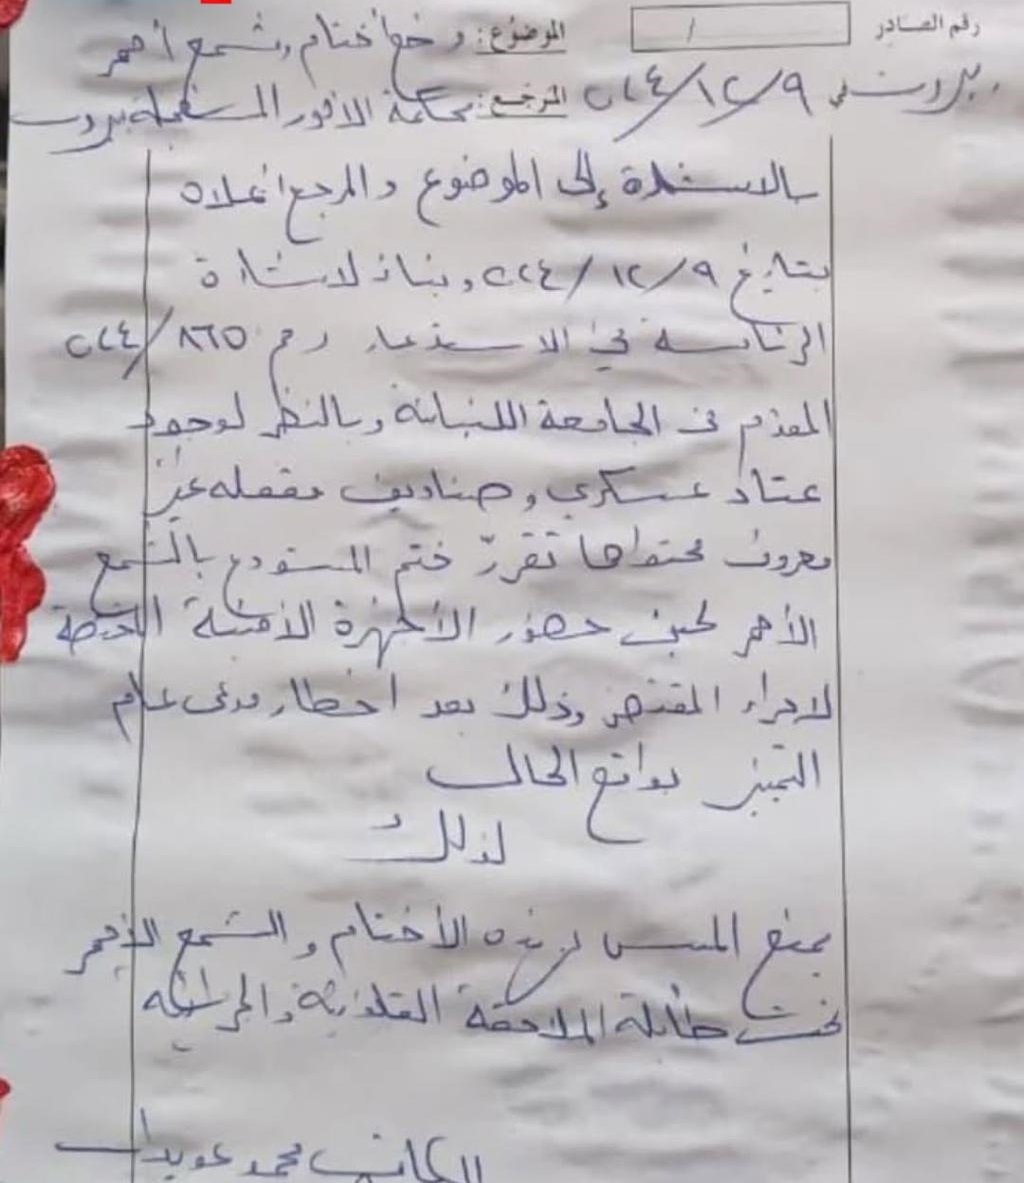 رقم الصادر / الموضوع: وضع أختام وشمع أحمر
بيروت في ٩/١٢/٢٠٢٤ المرجع: محكمة الأمور المستعجلة بيروت
بالاستناد إلى الموضوع والمرجع أعلاه
بتاريخ ٩/١٢/٢٠٢٤ وبناءً لاشارة
الرئاسة في الاستدعاء رقم ٨٦٥/٢٠٢٤
المقدم من الجامعة اللبنانية وبالنظر لوجود
عتاد عسكري وصناديق مقفلة غير
معروف محتواها تقرّر ختم المستودع بالشمع
الأحمر لحين حضور الأجهزة الأمنية المختصة
لاجراء المقتضى وذلك بعد اخطار مدعي عام
التمييز بواقع الحال
لذلك
يمنع المس بهذه الأختام والشمع الأحمر
تحت طائلة الملاحقة القانونية والجزائية
الكاتب محمد عويدات